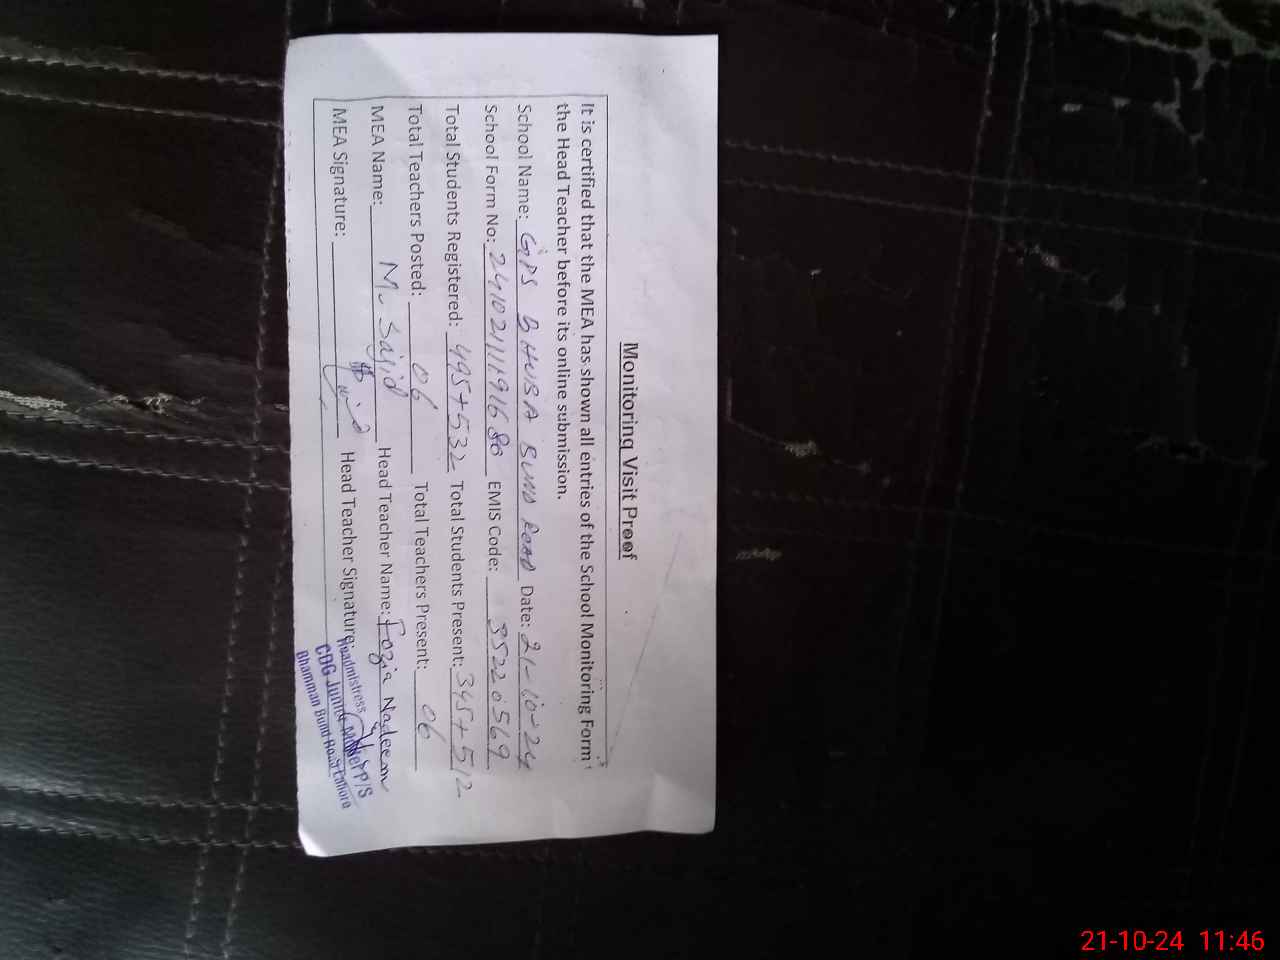 Monitoring Visit Proof
It is certified that the MEA has shown all entries of the School Monitoring Form
the Head Teacher before its online submission.
School Name: GPS BHUBA BUND ROAD Date: 21-10-24
School Form No: EMIS Code: 35220569
Total Students Registered: 495+532 Total Students Present: 345+512
Total Teachers Posted: 06 Total Teachers Present: 06
MEA Name: M. Sajid Head Teacher Name: Fozia Nadeem
MEA Signature: Head Teacher Signature:
Headmistress
CDG Junior Model P/S
Bhamman Bund Road Lahore
21-10-24 11:46